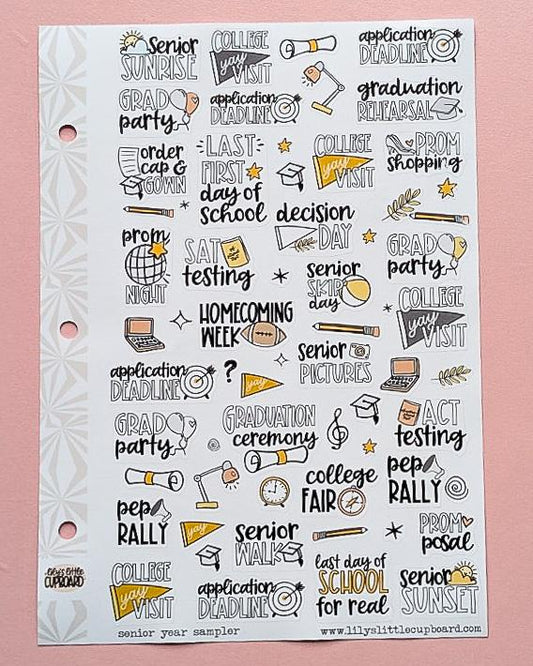 senior
SUNRISE
COLLEGE
yay
VISIT
application
DEADLINE
GRAD
party
application
DEADLINE
graduation
REHEARSAL
order
cap &
GOWN
LAST
FIRST
day of
school
COLLEGE
yay
VISIT
PROM
shopping
prom
NIGHT
SAT
testing
decision
DAY
GRAD
party
senior
SKIP
day
COLLEGE
yay
VISIT
HOMECOMING
WEEK
senior
PICTURES
application
DEADLINE
?
yay
GRAD
party
GRADUATION
ceremony
ACT
testing
college
FAIR
pep
RALLY
pep
RALLY
yay
senior
WALK
PROM
posal
COLLEGE
yay
VISIT
application
DEADLINE
last day of
SCHOOL
for real
senior
SUNSET
lily's little
CUPBOARD
senior year sampler
www.lilyslittlecupboard.com